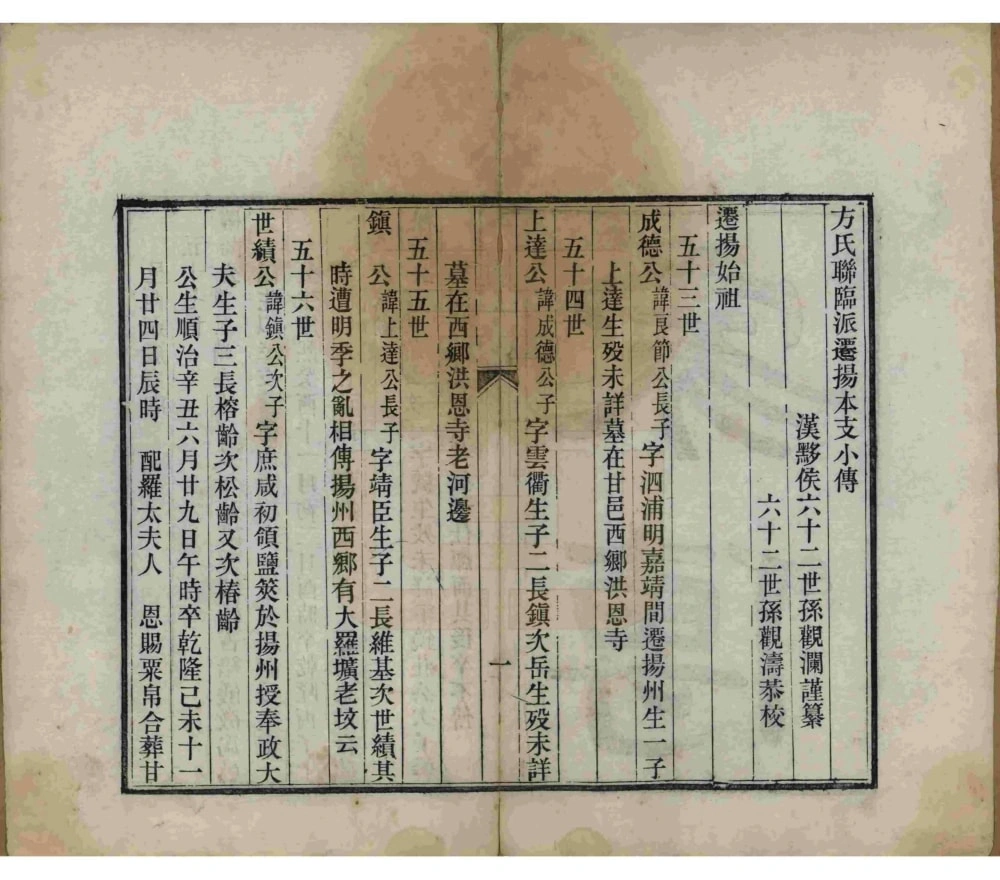 方氏聯臨派遷揚本支小傳
漢黟侯六十二世孫觀瀾謹纂
六十二世孫觀濤恭校
遷揚始祖
五十三世
成德公 諱良節公長子 字泗浦明嘉靖間遷揚州生一子
上達生歿未詳墓在甘邑西鄉洪恩寺
五十四世
上達公 諱成德公子 字雲衢生子二長鎮次岳生歿未詳
一
墓在西鄉洪恩寺老河邊
五十五世
鎮 公 諱上達公長子 字靖臣生子二長維基次世績其
時遭明季之亂相傳揚州西鄉有大羅壙老坟云
五十六世
世績公 諱鎮公次子 字庶咸初領鹽筴於揚州授奉政大
夫生子三長榕齡次松齡又次椿齡
公生順治辛丑六月廿九日午時卒乾隆己未十一
月廿四日辰時 配羅太夫人 恩賜粟帛合葬甘